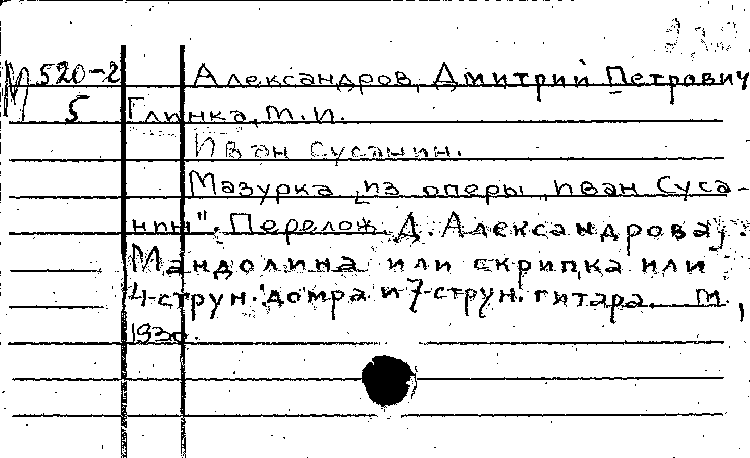 М 520-2 Александров, Дмитрий Петрович
5 Глинка, М.И.
Иван Сусанин.
Мазурка из оперы „Иван Суса-
нин". Перелож. Д. Александрова.
Мандолина или скрипка или
4-струн. домра и 7-струн. гитара. М.,
1930.